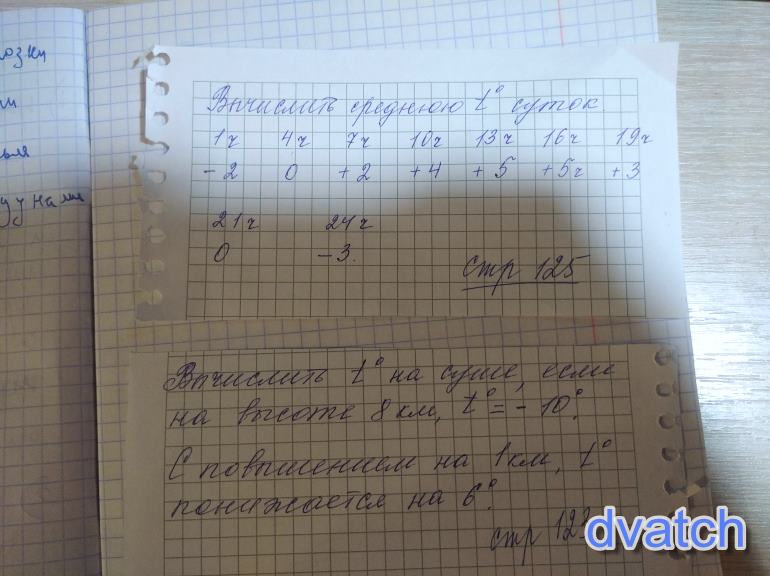 озки
Вычислить среднюю t° суток.
1ч 4ч 7ч 10ч 13ч 16ч 19ч
-2 0 +2 +4 +5 +5ч +3
21ч 24ч
0 -3.
стр 125
Вычислить t° на суше, если
на высоте 8 км, t°= -10°.
С повышением на 1км, t°
понижается на 6°.
стр 123
dvatch